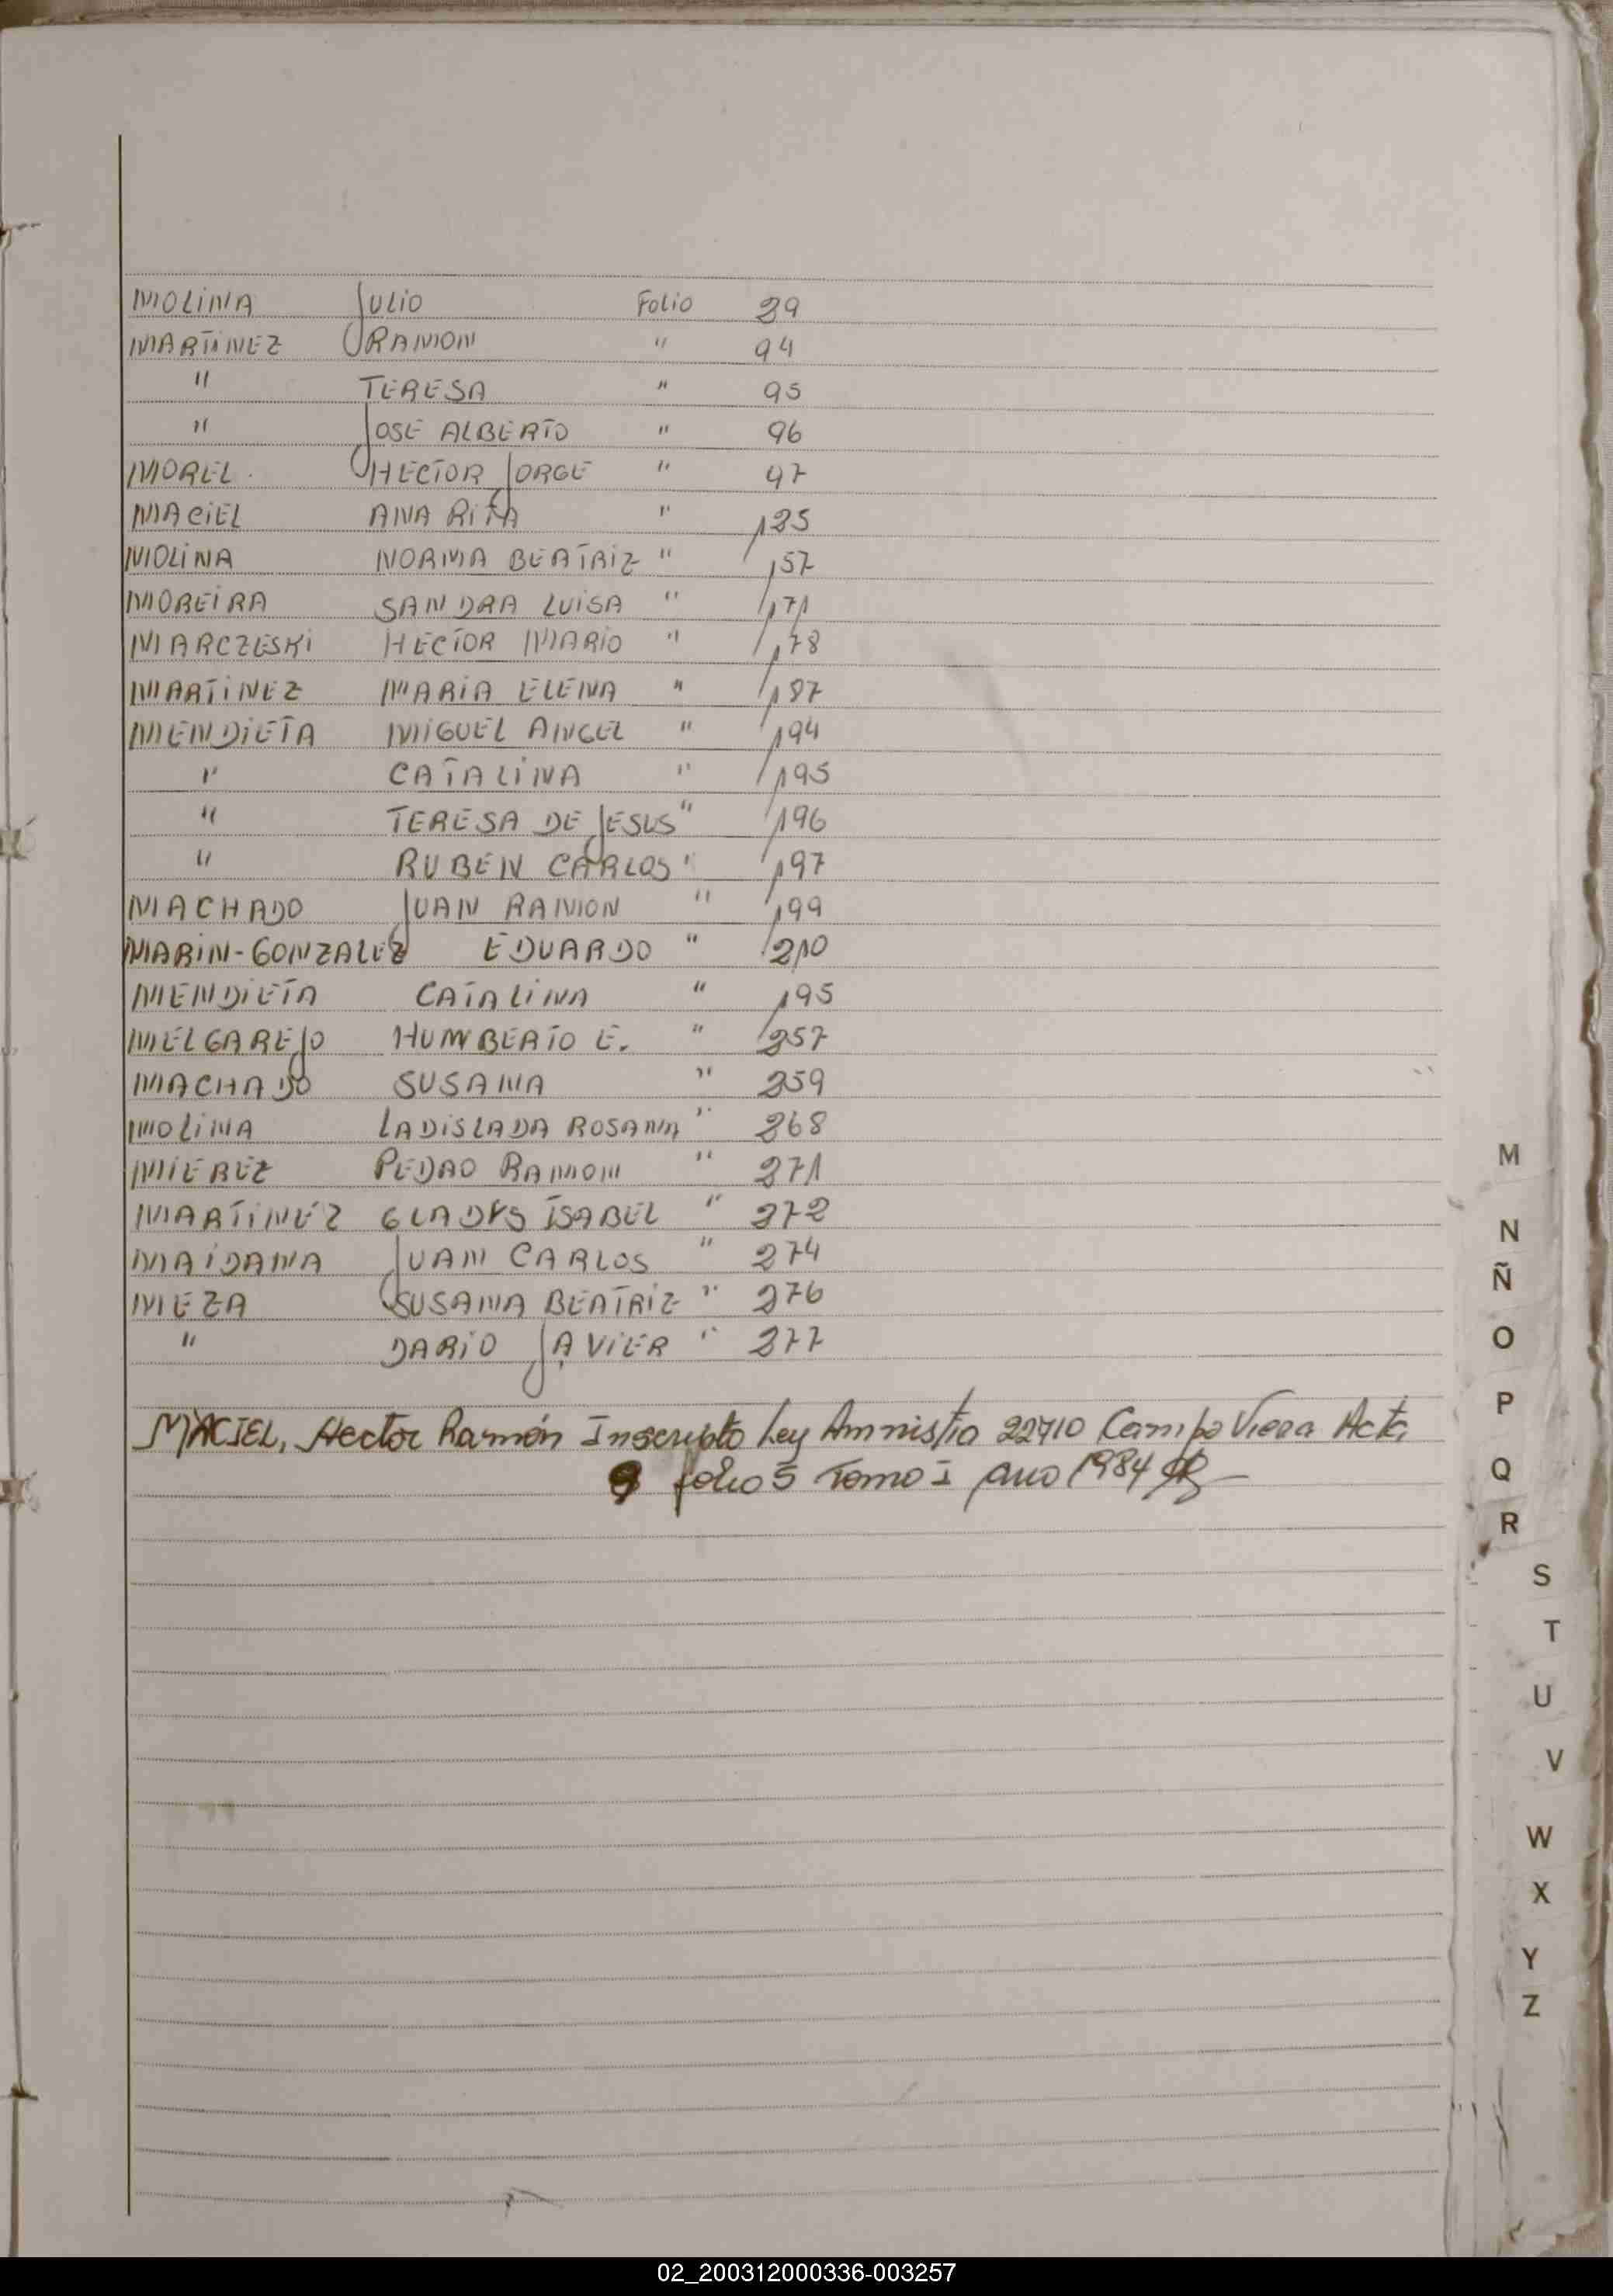 MOLINA JULIO Folio 29
MARTINEZ RAMON " 94
" TERESA " 95
" JOSE ALBERTO " 96
MOREL. HECTOR JORGE " 97
MACIEL ANA RITA " 125
MOLINA NORMA BEATRIZ " 157
MOREIRA SANDRA LUISA " 171
MARCZESKI HECTOR MARIO " 178
MARTINEZ MARIA ELENA " 187
MENDIETA MIGUEL ANGEL " 194
" CATALINA " 195
" TERESA DE JESUS " 196
" RUBEN CARLOS " 197
MACHADO JUAN RAMON " 199
MARIN-GONZALEZ EDUARDO " 210
MENDIETA CATALINA " 195
MELGAREJO HUMBERTO E. " 257
MACHADO SUSANA " 259
MOLINA LADISLADA ROSANA " 268
MIEREZ PEDRO RAMON " 271
MARTINEZ GLADYS ISABEL " 272
MAIDANA JUAN CARLOS " 274
MEZA SUSANA BEATRIZ " 276
" DARIO JAVIER " 277
MACIEL, Hector Ramón Inscripto Ley Amnistia 22410 Campo Viera Acta
9 folio 5 Tomo I año 1984
M
N
Ñ
O
P
Q
R
S
T
U
V
W
X
Y
Z
02_200312000336-003257